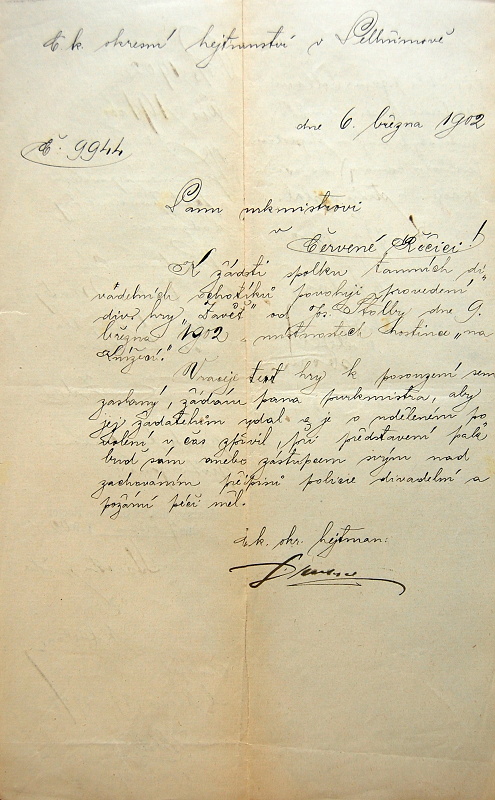 C. k. okresní hejtmanství v Pelhřimově
dne 6. března 1902
Č. 9944
Panu purkmistrovi
v
Červené Řečici!
K žádosti spolku tamních di-
vadelních ochotníků povoluji provedení
div. hry „Závěť" od Jos. Štolby dne 9.
března 1902 v místnostech hostince „na
Knížecí."
Vraceje text hry k posouzení sem
zaslaný, žádám pana purkmistra, aby
jej žadatelům vydal a je o uděleném po
volení v čas zpravil, při představení pak
buď sám anebo zástupcem svým nad
zachováním předpisů policie divadelní a
požární péči měl.
C. k. okr. hejtman: